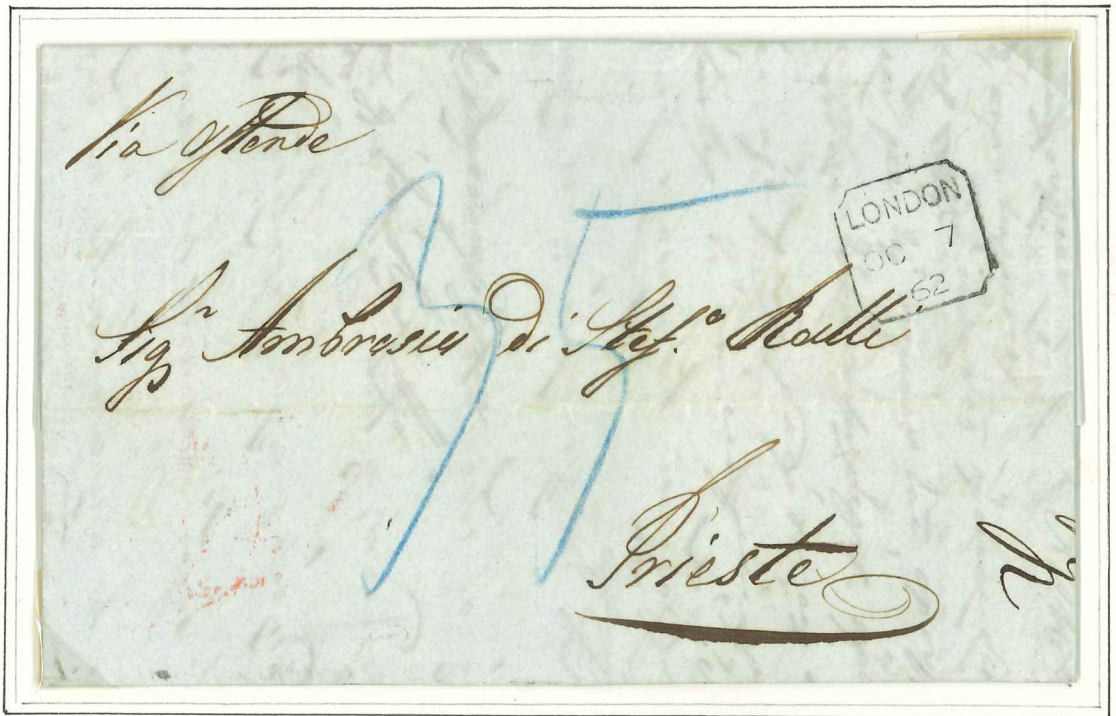 Via Ostende
35
LONDON
OC 7
62
Sigr Ambrosio di Stefo Ralli
Trieste